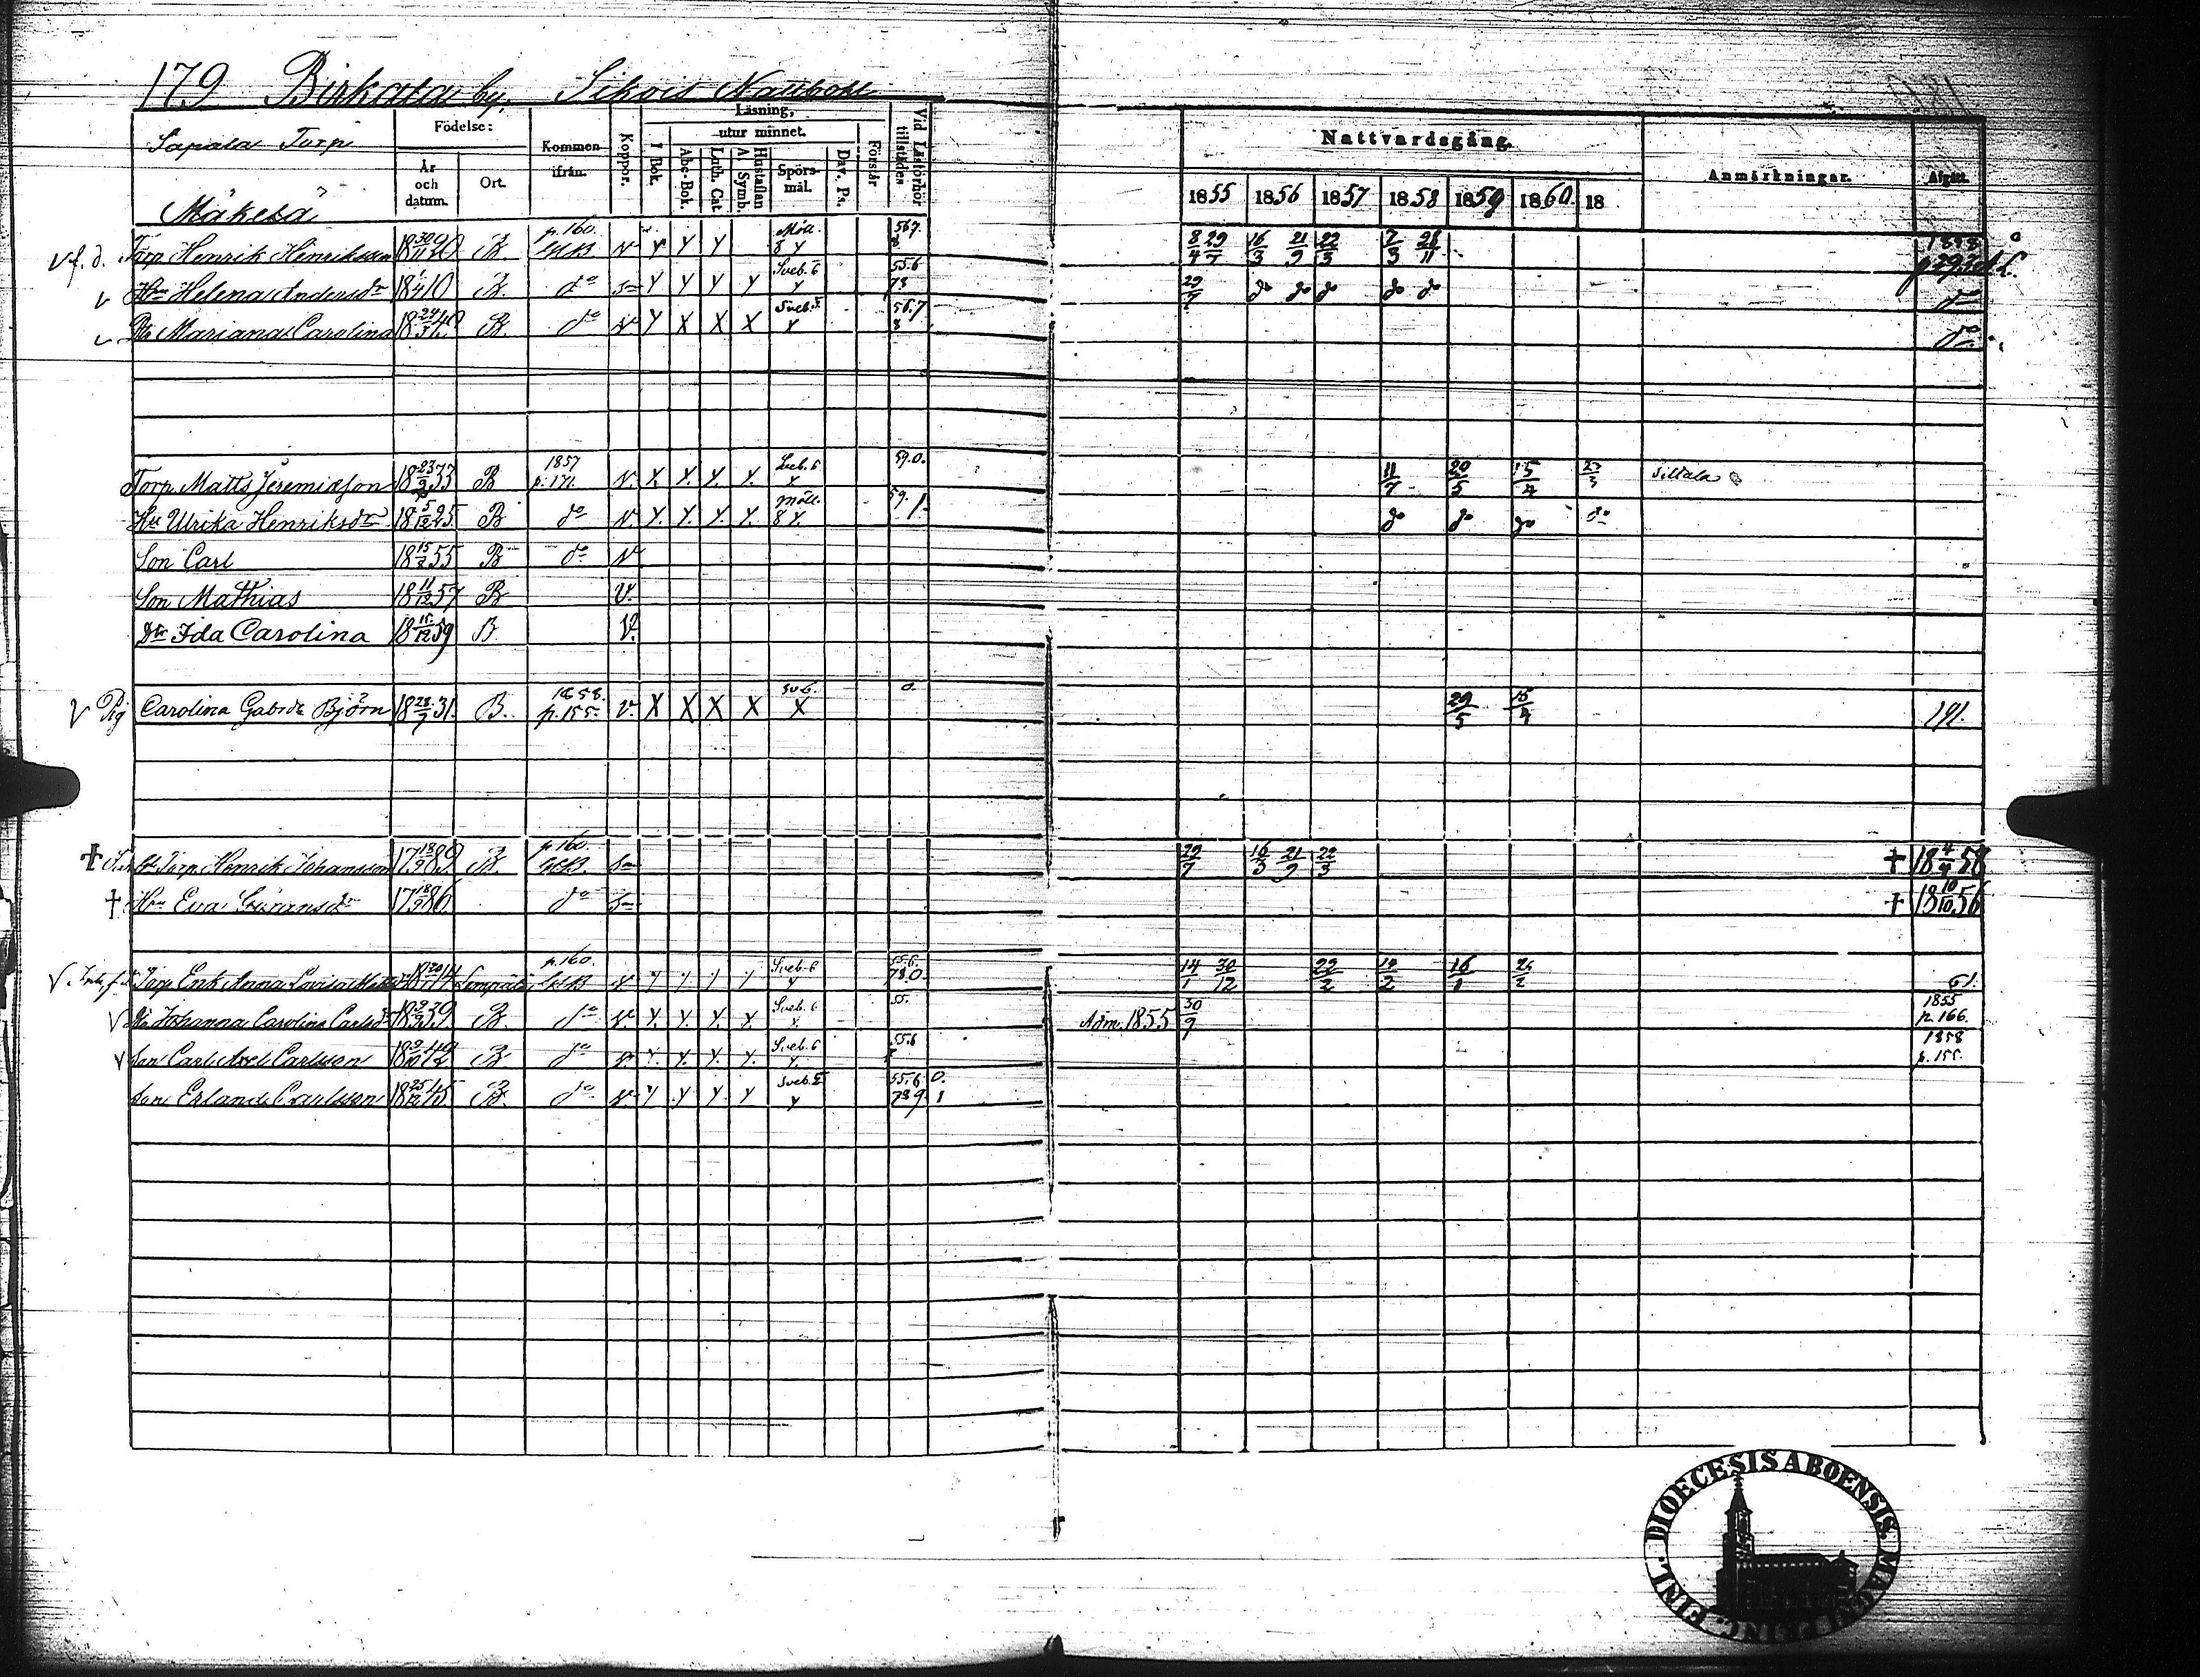 179 Birkala by. Sihvis Nattboll
Sapala Torp
Födelse:
År och datum.
Ort.
Kommen ifrån.
Koppor.
Läsning,
utur minnet.
I Bok.
Abc-Bok.
Luth. Cat.
Hustaflan A Symb.
Spörsmål.
Dav. Ps.
Förstår
Vid Läsförhör tillstädes
Nattvardsgång.
1855 1856 1857 1858 1859 1860 18
Anmärkningar.
Afgått.
Mäkelä
v f. d. Torp Henrik Henriksson 18 30/11 20 B. p. 160. v Y Y Y Möll. 8 Y 567 8/4 29/7 16/3 21/9 22/3 7/3 28/11 1858
v Hu Helena Andersdr 18 1/4 10 B. do Y Y Y Y Sveb. 6 Y 55.6 78 29/7 do do do do do do
v Dr Mariana Carolina 18 24/3 40 B. do v Y X X X Sveb. Y 56.7 8 do
Torp Matts Jeremiasson 18 23/9 33 B 1857 p. 171. v. Y. Y. Y. Y. Sveb. 6 Y 59.0. 11/7 20/5 15/4 23/3 Siltala
Hu Ulrika Henriksdr 18 5/12 25. B do v. Y. Y. Y. Y. möll. 8 Y. 59. 1. do do do do
Son Carl 18 15/7 55 B do v
Son Mathias 18 11/12 57 B v.
Dtr Ida Carolina 18 15/12 59 B. v.
v Pig Carolina Gabrdr Björn 18 28/7 31. B. 1858. p. 155. v. X X X X Sv 6. X 0. 29/5 15/4 191.
† Torp. Henrik Johansson 17 18/9 89 B. p. 160. 29/7 16/3 21/9 22/3 † 18 4/4 58
† Hu Eva Göransdr 17 18/9 86 do † 18 10/10 56
v. Torp Enk Anna Lovisa 14 Lempälä p. 160. v Y Y Y Y Sveb. 6 Y 55.6. 78.0. 14/1 30/12 22/2 14/2 16/1 26/2 61.
v Dr Johanna Carolina Carlsdr 39 B. do v. Y. Y. Y. Y. Sveb. 6 Y. 55. Adm. 1855 30/9 1855 p. 166.
v Son Carl Axel Carlsson 42 B. do v. Y. Y. Y. Y. Sveb. 6 Y. 55.6 1858 p. 155.
Son Erland Carlsson 18 25/12 45 B. do v. Y Y Y Y Sveb. Y 55.6 0. 789. 1
DIOECESIS ABOENSIS. FINL.